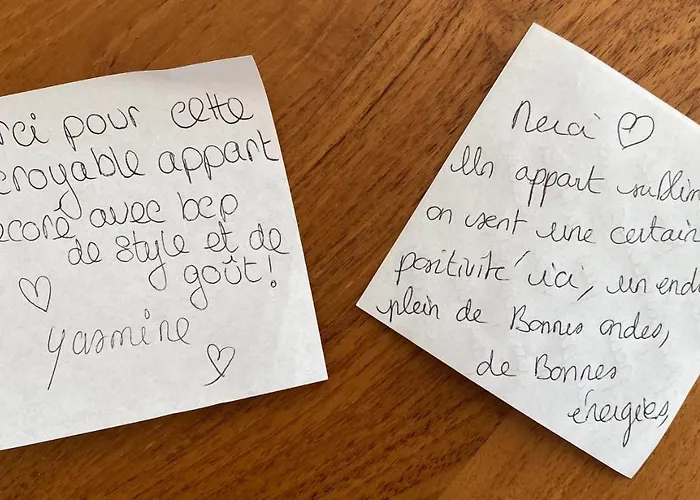 rci pour cette
croyable appart
écoré avec bcp
de style et de
goût!
Yasmine
Merci
Un appart sublim
on sent une certain
positivité ici, un end
plein de Bonnes ondes,
de Bonnes
énergies,